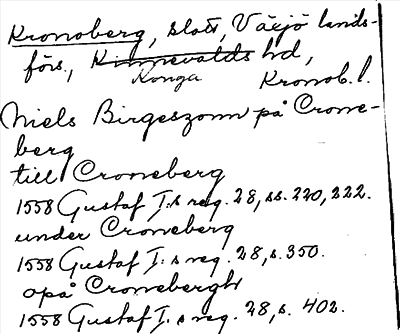 Kronoberg, slott, Växjö lands-
förs., Kinnevalds hd,
Konga Kronob. l.
Niels Birgeszonn på Crone-
berg
till Croneberg
1558 Gustaf I:s reg. 28, ss. 220, 222.
under Croneberg
1558 Gustaf I:s reg. 28, s. 350.
opå Cronebergh
1558 Gustaf I:s reg. 28, s. 402.